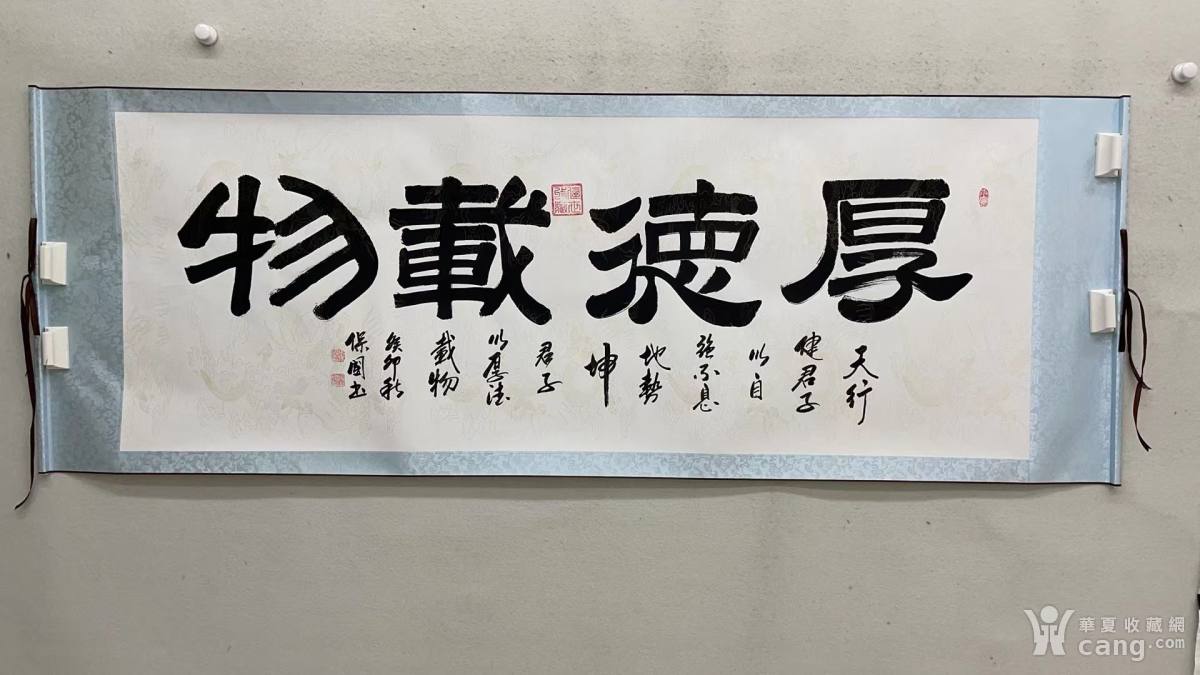 厚德載物
天行
健君子
以自
强不息
地勢
坤
君子
以厚德
載物
癸卯秋
保國书
華夏收藏網
cang.com